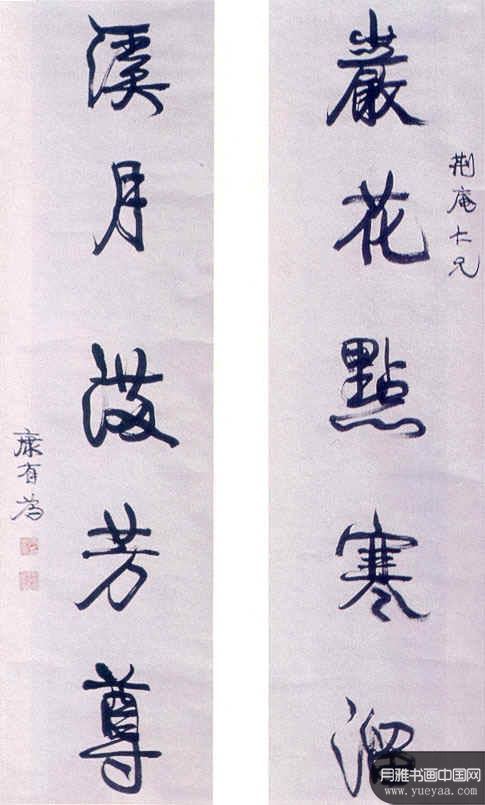 荆庵仁兄
巖花點寒溜
溪月 芳尊
康有為
月雅书画中国网
www.yueyaa.com